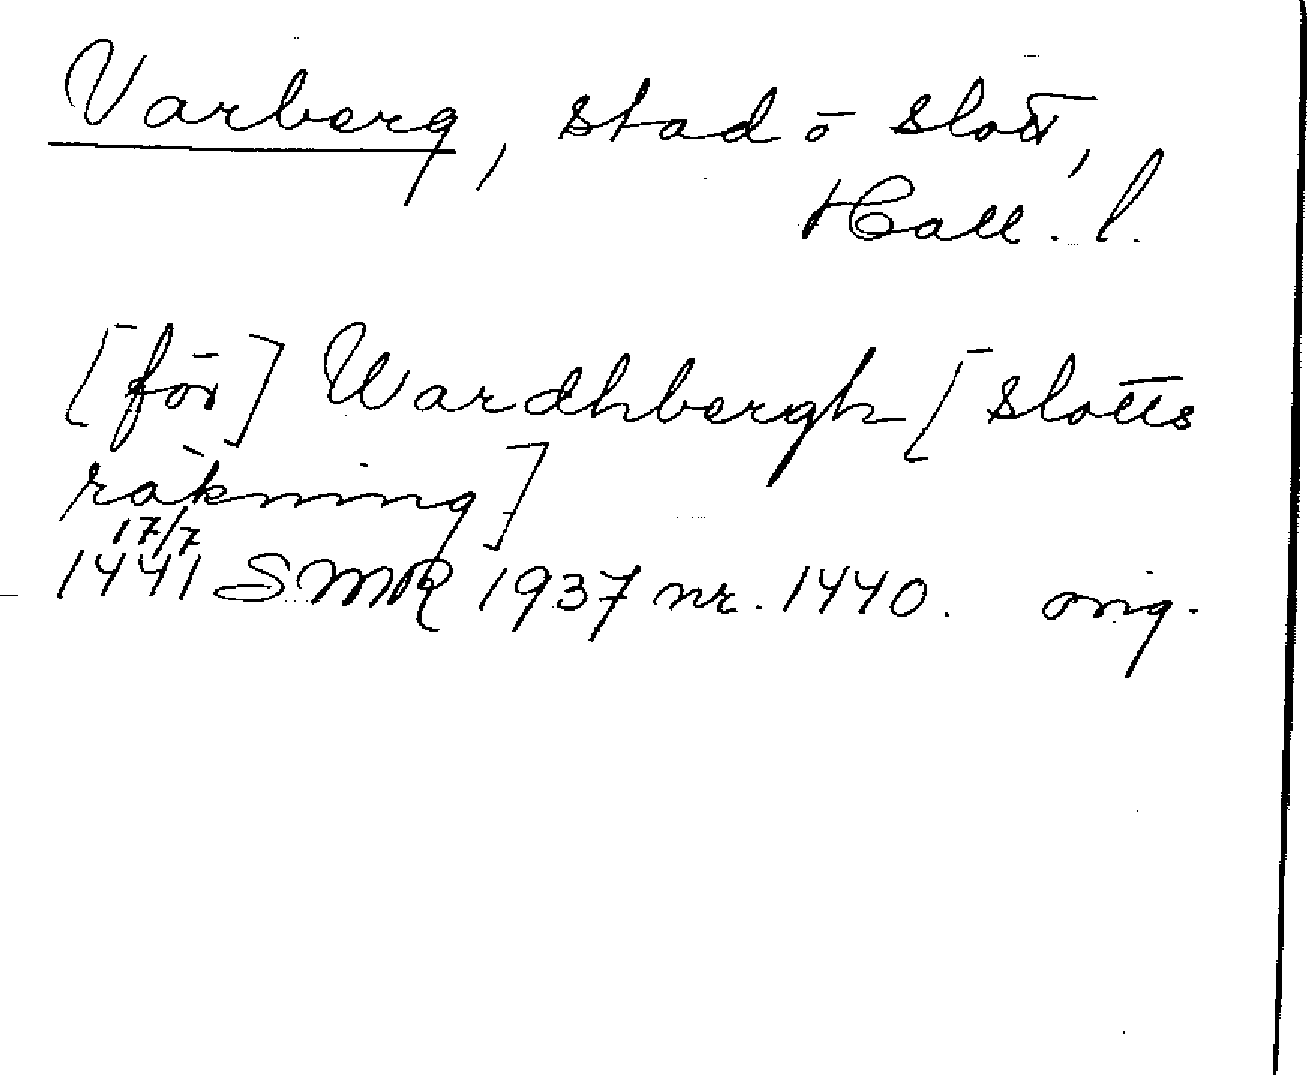 Varberg, stad ō slott,
Hall. l.
[för] Wardhbergh [slotts
räkning]
17/7
1441 SMR 1937 nr. 1440. orig.